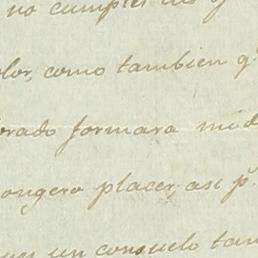 no cumples
olor, como tambien q.
orado formara mod
ongero placer, asi p.
un consuelo tan